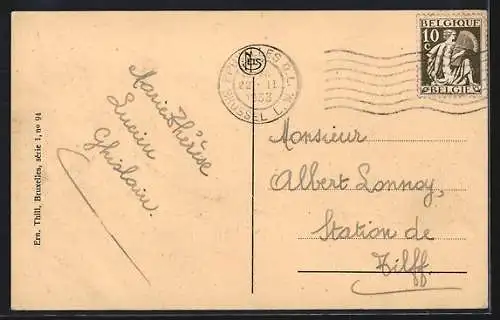 Ern. Thill, Bruxelles, série 1, nº 94
Marie Thérèse
Lucien
Ghislain.
NELS
22 - II
1933
BRUSSEL
BELGIQUE
10
c
BELGIË
Monsieur
Albert Lonnoy,
Station de
Tilff.